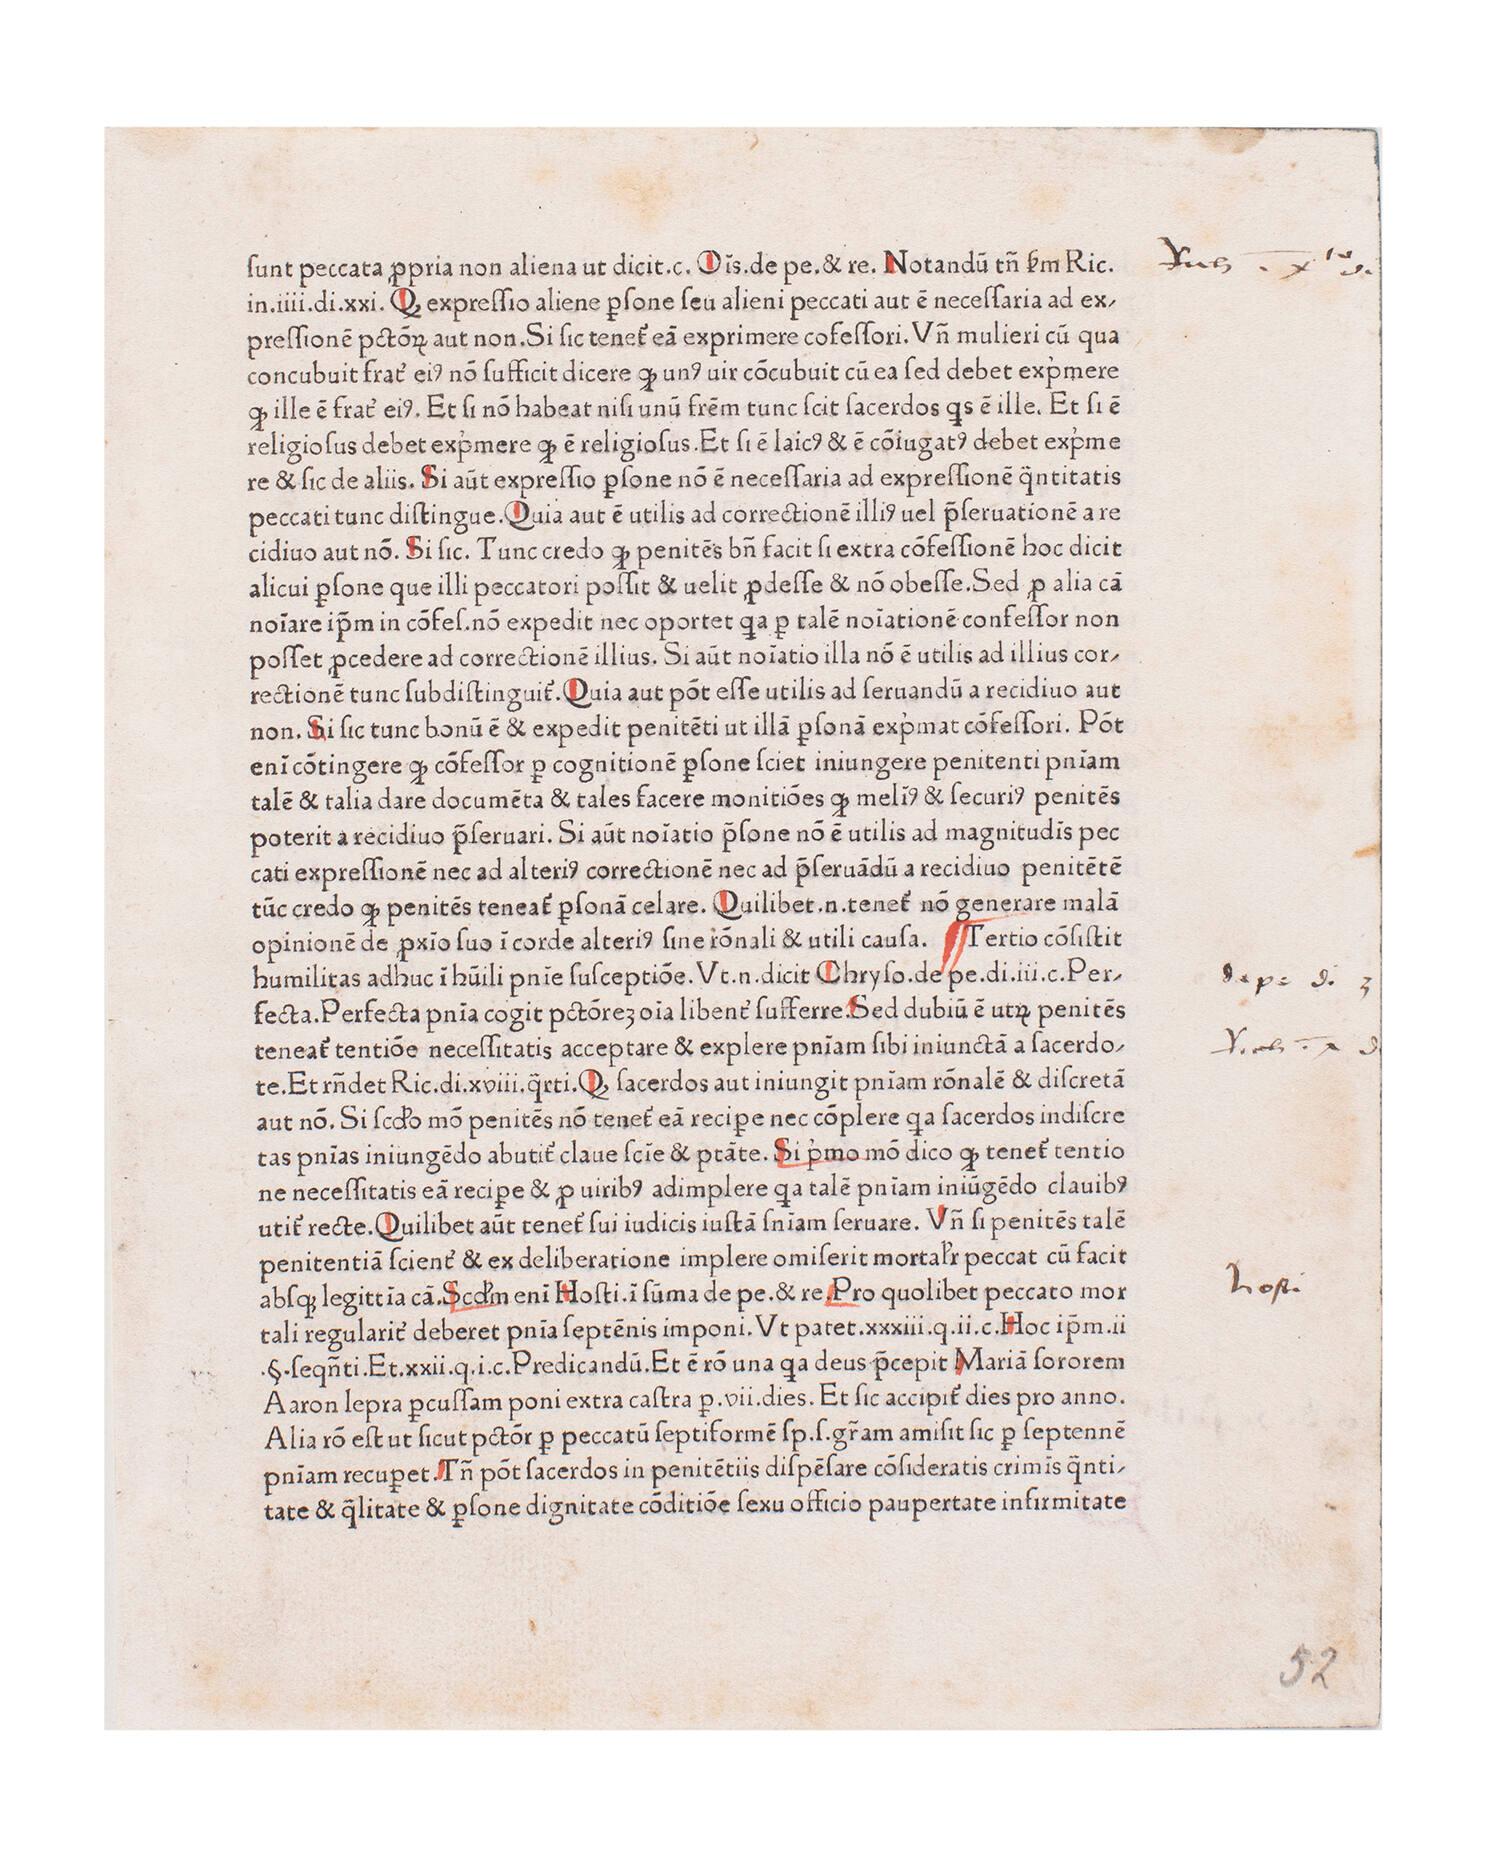 ſunt peccata ꝓpria non aliena ut dicit.c. Oīs.de pe.& re. Notandū tñ ẜm Ric.
in.iiii.di.xxi. Q̨ expreſſio aliene ꝑſone ſeu alieni peccati aut ē neceſſaria ad ex⸝
preſſionē pctōꝝ aut non.Si ſic tenet᷑ eā exprimere cofeſſori. Vñ mulieri cū qua
concubuit frat᷑ ei⁹ nō ſufficit dicere ꝙ un⁹ uir cōcubuit cū ea ſed debet exp̓mere
ꝙ ille ē frat᷑ ei⁹. Et ſi nō habeat niſi unū frēm tunc ſcit ſacerdos qͥs ē ille. Et ſi ē
religioſus debet exp̓mere ꝙ ē religioſus.Et ſi ē laic⁹ & ē cōiugat⁹ debet exp̓me
re & ſic de aliis. Si aūt expreſſio ꝑſone nō ē neceſſaria ad expreſſionē q̄ntitatis
peccati tunc diſtingue.Quia aut ē utilis ad correctionē illi⁹ uel p̄ſeruationē a re
cidiuo aut nō. Si ſic. Tunc credo ꝙ penitēs bñ facit ſi extra cōfeſſionē hoc dicit
alicui ꝑſone que illi peccatori poſſit & uelit ꝓdeſſe & nō obeſſe.Sed ꝓ alia cā
noīare ip̄m in cōfeſ.nō expedit nec oportet qa ꝑ talē noīationē confeſſor non
poſſet ꝓcedere ad correctionē illius. Si aūt noīatio illa nō ē utilis ad illius cor⸝
rectionē tunc ſubdiſtinguit᷑.Quia aut pōt eſſe utilis ad ſeruandū a recidiuo aut
non. Si ſic tunc bonū ē & expedit penitēti ut illā ꝑſonā exp̓mat cōfeſſori. Pōt
enī cōtingere ꝙ cōfeſſor ꝑ cognitionē ꝑſone ſciet iniungere penitenti pnīam
talē & talia dare documēta & tales facere monitiōes ꝙ meli⁹ & ſecuri⁹ penitēs
poterit a recidiuo p̄ſeruari. Si aūt noīatio p̄ſone nō ē utilis ad magnitudīs pec
cati expreſſionē nec ad alteri⁹ correctionē nec ad p̄ſeruādū a recidiuo penitētē
tūc credo ꝙ penitēs teneat᷑ ꝑſonā celare. Quilibet.n.tenet᷑ nō generare malā
opinionē de ꝓxīo ſuo ī corde alteri⁹ ſine rōnali & utili cauſa. Tertio cōſiſtit
humilitas adhuc ī hūili pnīe ſuſceptiōe. Vt.n.dicit Chryſo.de pe.di.iii.c.Per⸝
fecta.Perfecta pnīa cogit pctōreʒ oīa libent᷑ ſufferre.Sed dubiū ē utꝝ penitēs
teneat᷑ tentiōe neceſſitatis acceptare & explere pnīam ſibi iniunctā a ſacerdo⸝
te.Et rñdet Ric.di.xviii.q̄rti.Q̨ ſacerdos aut iniungit pnīam rōnalē & diſcretā
aut nō. Si ſcd̓o mō penitēs nō tenet᷑ eā recipe nec cōplere qa ſacerdos indiſcre
tas pnīas iniungēdo abutit᷑ claue ſcīe & ptāte. Si p̓mo mō dico ꝙ tenet᷑ tentio
ne neceſſitatis eā reciꝑe & ꝓ uirib⁹ adimplere qa talē pnīam iniūgēdo clauib⁹
utit᷑ recte.Quilibet aūt tenet᷑ ſui iudicis iuſtā ſnīam ſeruare. Vñ ſi penitēs talē
penitentiā ſcient᷑ & ex deliberatione implere omiſerit mortal̓r peccat cū facit
abſqꝫ legittīa cā.Scd̓m enī Hoſti.ī ſūma de pe.& re.Pro quolibet peccato mor
tali regularit᷑ deberet pnīa ſeptēnis imponi. Vt patet.xxxiii.q.ii.c.Hoc ip̄m.ii
.§.ſeqñti.Et.xxii.q.i.c.Predicandū.Et ē rō una qa deus p̄cepit Mariā ſororem
Aaron lepra ꝑcuſſam poni extra caſtra ꝑ.vii.dies. Et ſic accipit᷑ dies pro anno.
Alia rō eſt ut ſicut pctōr ꝑ peccatū ſeptiformē ſp.ſ.gr̄am amiſit ſic ꝑ ſeptennē
pnīam recuꝑet.Tñ pōt ſacerdos in penitētiis diſpēſare cōſideratis crimīs q̄nti⸝
tate & q̄litate & ꝑſone dignitate cōditiōe ſexu officio pauꝑertate infirmitate
de pe di. 3
hosti.
52